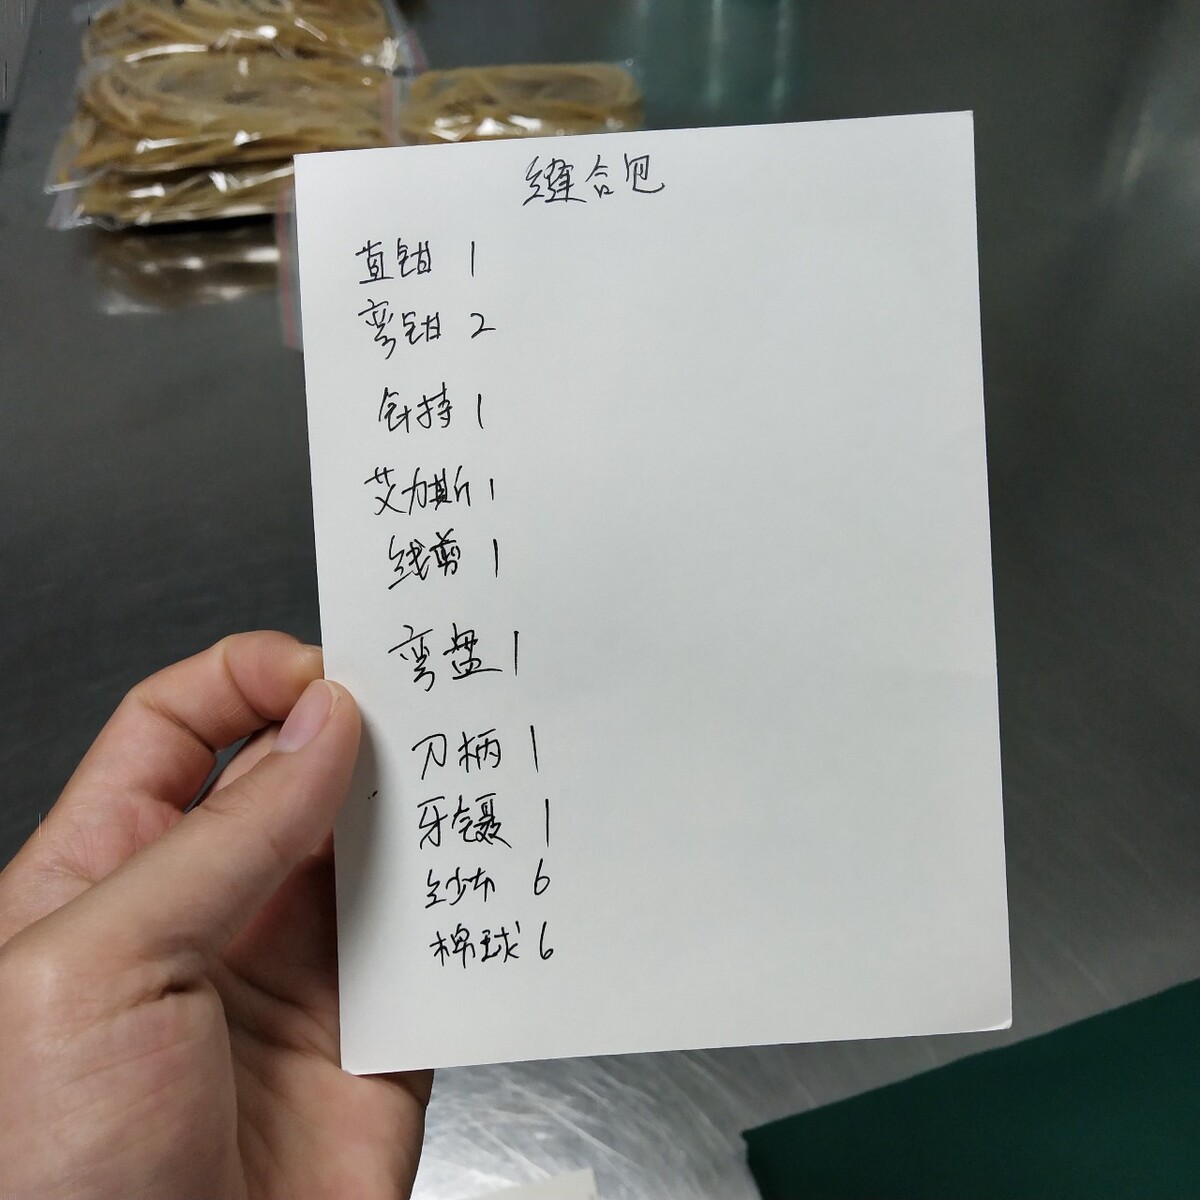 缝合包
直钳 1
弯钳 2
针持 1
艾力斯 1
线剪 1
弯盘 1
刀柄 1
牙镊 1
纱布 6
棉球 6